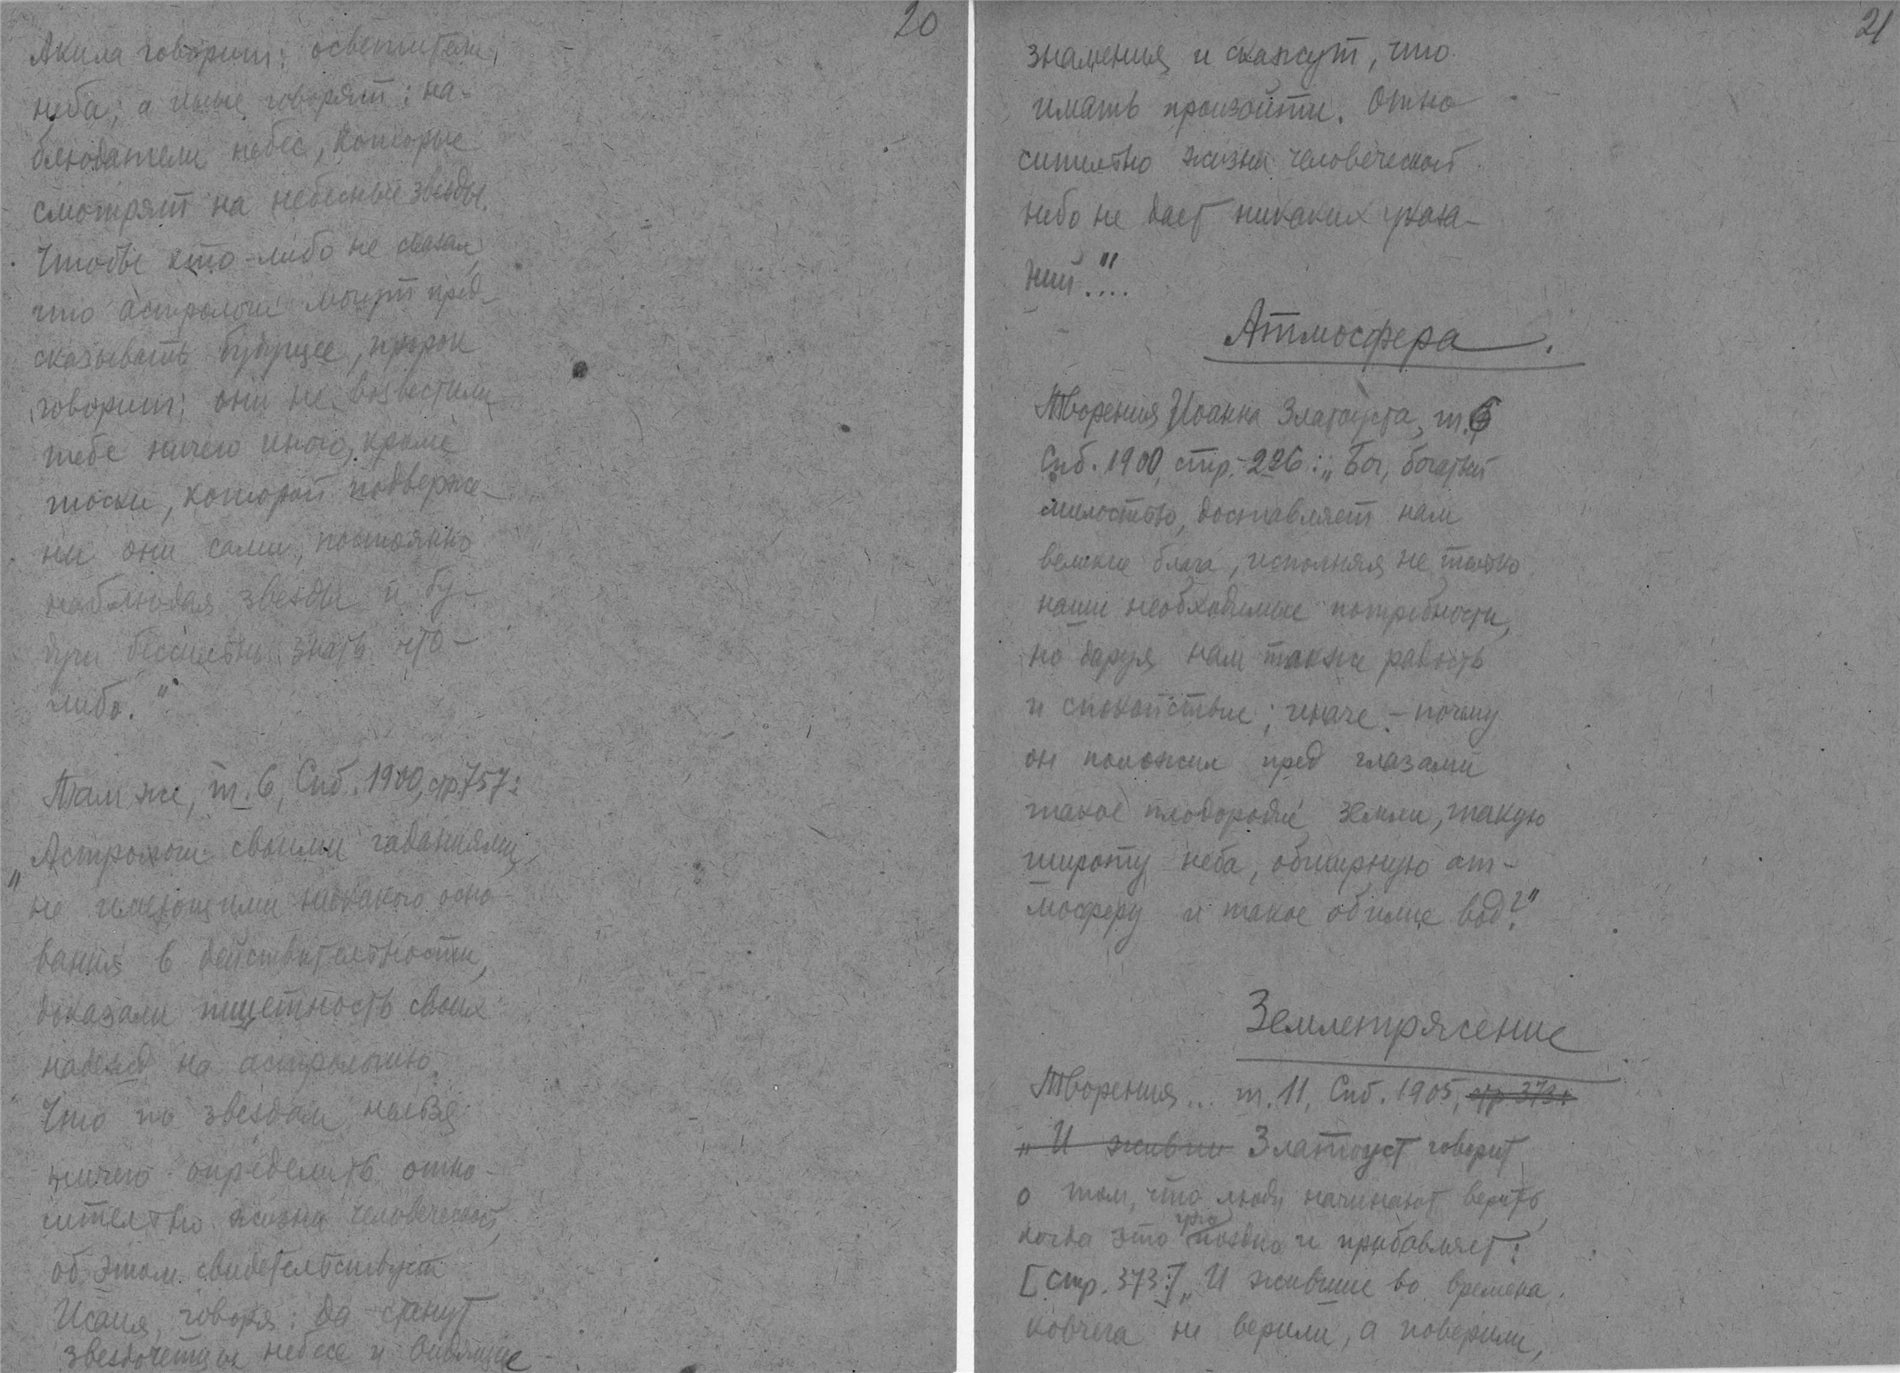 20
Акила говорит: осветители
неба; а иные говорят: на-
блюдатели небес, которые
смотрят на небесные звезды.
Чтобы кто-либо не сказал,
что астрологи могут пред-
сказывать будущее, пророк
говорит: они не возвестили
тебе ничего иного, кроме
тоски, которой подверже-
ны они сами, постоянно
наблюдая звезды и бу-
дучи бессильны знать что-
либо."
Там же, т. 6, Спб. 1900, стр. 757:
„Астрологи своими гаданиями,
не имеющими никакого осно-
вания в действительности,
доказали тщетность своих
надежд на астрологию.
Что по звездам нельзя
ничего определить отно-
сительно жизни человеческой,
об этом свидетельствует
Исаия, говоря: да станут
звездочетцы небесе и видящие
21
знамения и скажут, что
имать произойти. Отно
сительно жизни человеческой
небо не дает никаких указа-
ний"....
Атмосфера.
Творения Иоанна Златоуста, т. 6
Спб. 1900, стр. 226: „Бог, богатый
милостью, доставляет нам
великие блага, исполняя не только
наши необходимые потребности,
но даруя нам также радость
и спокойствие; иначе – почему
он положил пред глазами
такое плодородие земли, такую
широту неба, обширную ат-
мосферу и такое обилие вод?"
Землетрясение
Творения... т. 11, Спб. 1905, стр 373:
„И живши Златоуст говорит
о том, что люди начинают верить,
когда это уже поздно и прибавляет:
[стр. 373:] „И жившие во времена
ковчега не верили, а поверили,